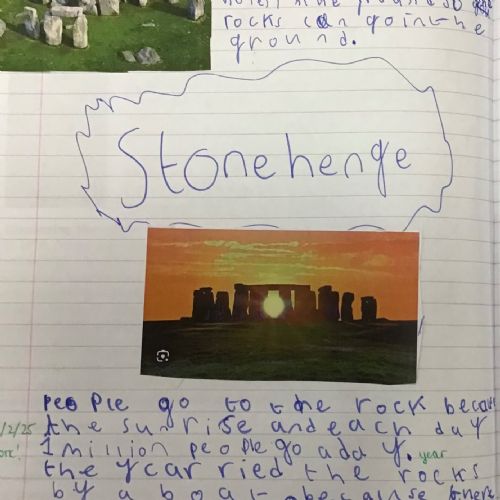 rocks can go in the
ground.
Stonehenge
PeoPle go to the rock becau
/2/25 the sun rise and each day
1 million people go a day. year
the ycar ried the rocks
by a boat because there